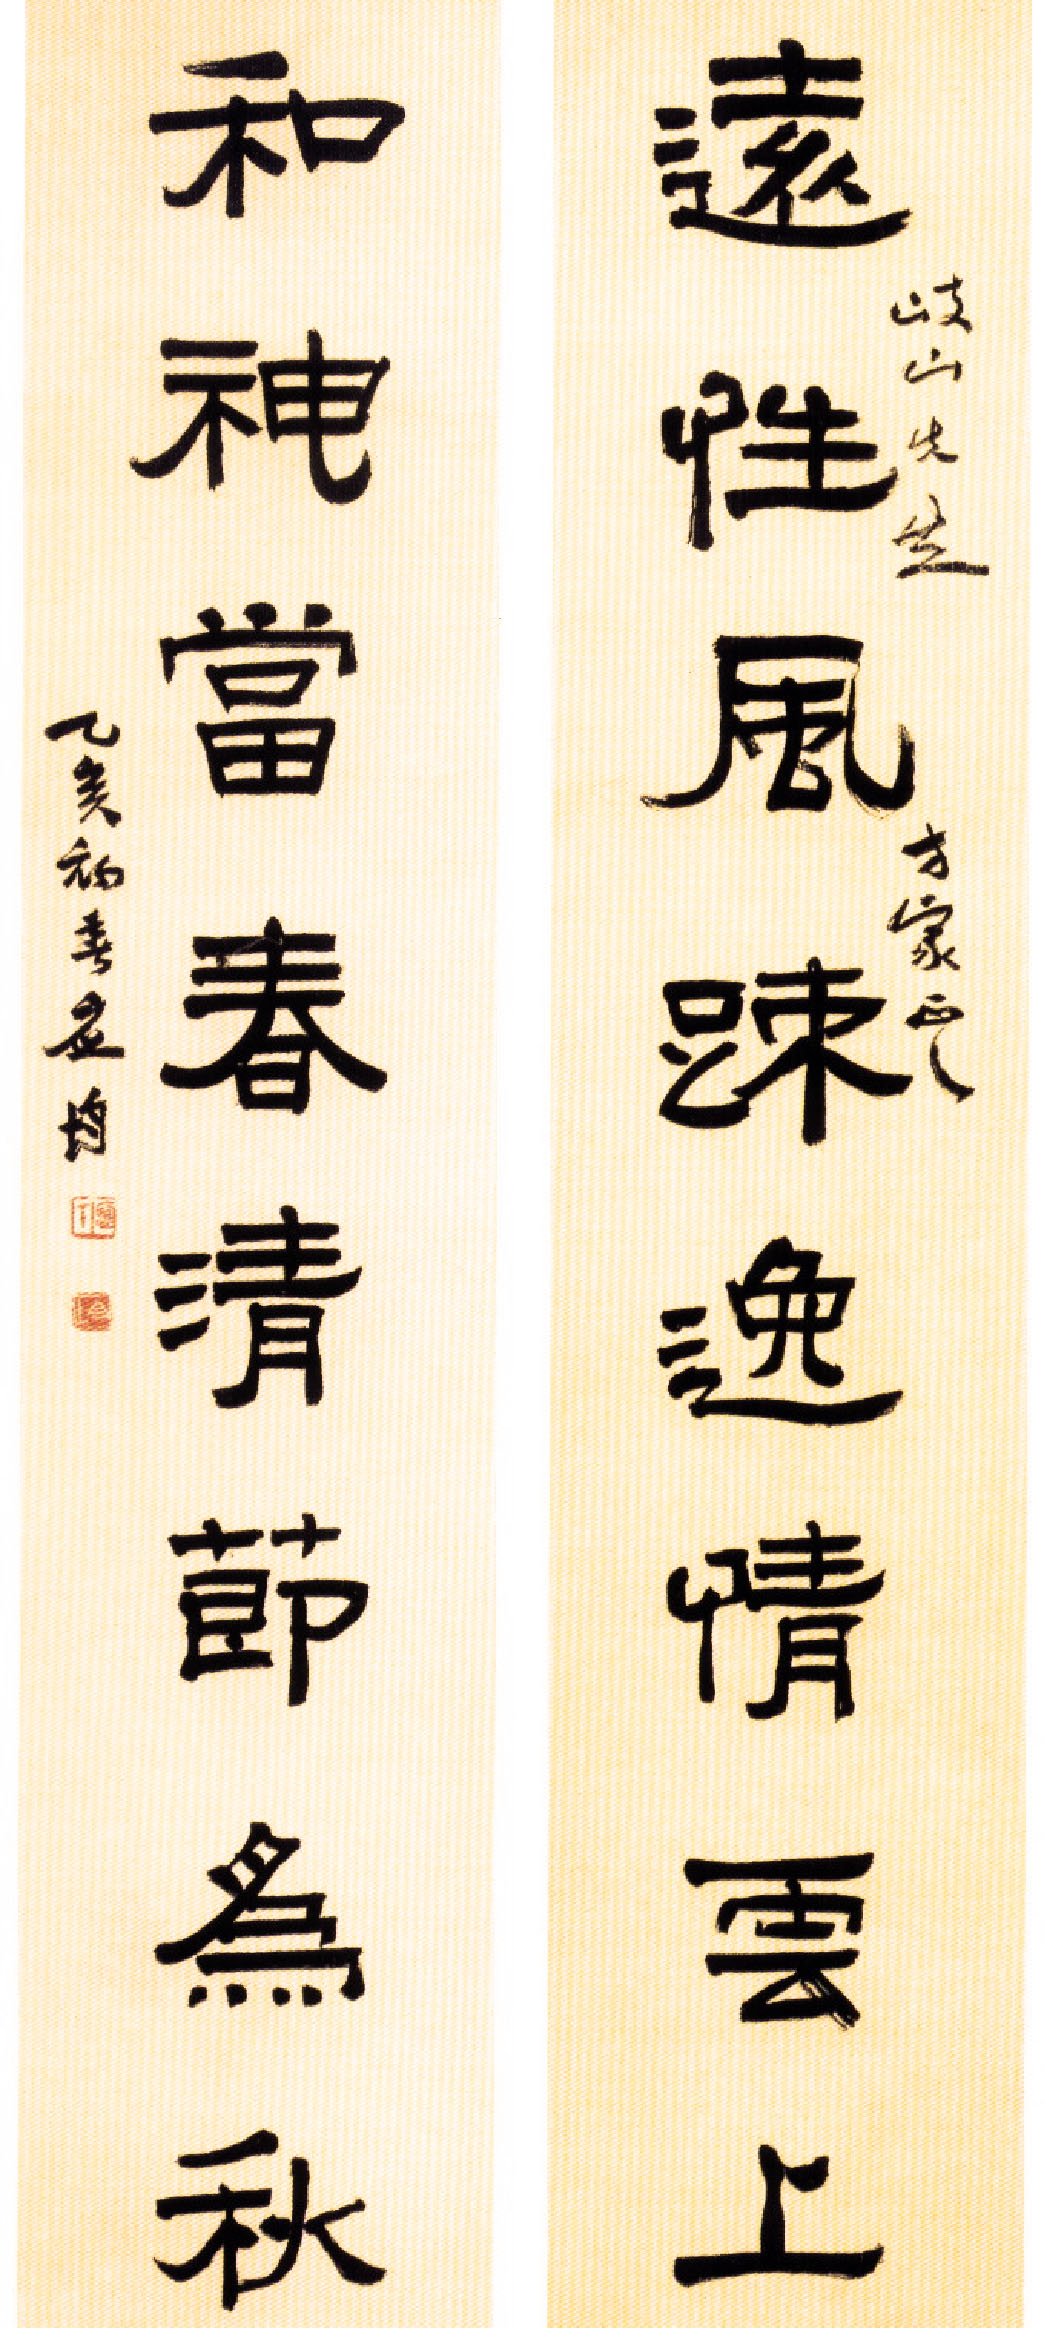 岐山先生
方家正之
遠性風踈逸情雲上
和神當春清節爲秋
乙亥初春